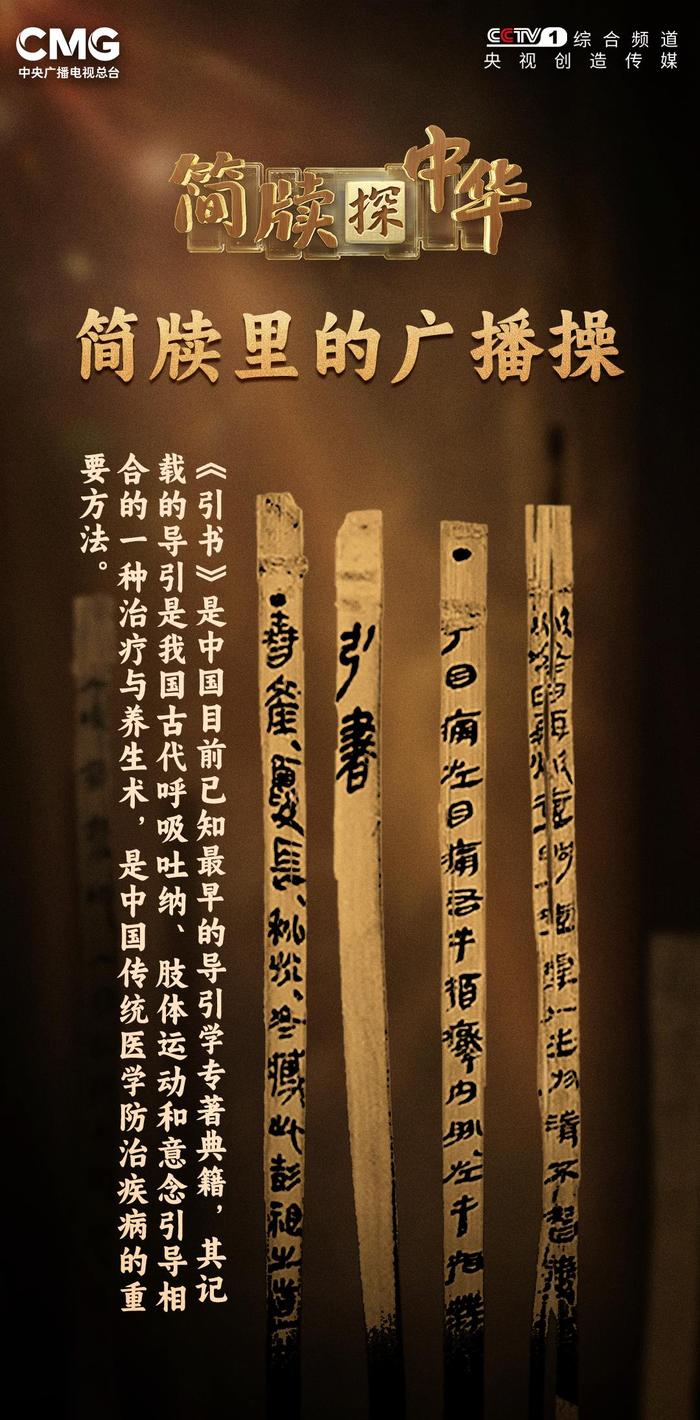 CMG
中央广播电视总台
CCTV 1 综合频道
央视创造传媒
简牍探中华
简牍里的广播操
《引书》是中国目前已知最早的导引学专著典籍，其记
载的导引是我国古代呼吸吐纳、肢体运动和意念引导相
合的一种治疗与养生术，是中国传统医学防治疾病的重
要方法。
引書
春產、夏長、秋收、冬臧此彭祖之道